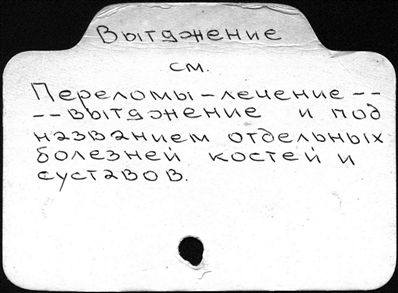 Вытяжение
см.
Переломы - лечение --
-- вытяжение и под
названием отдельных
болезней костей и
суставов.